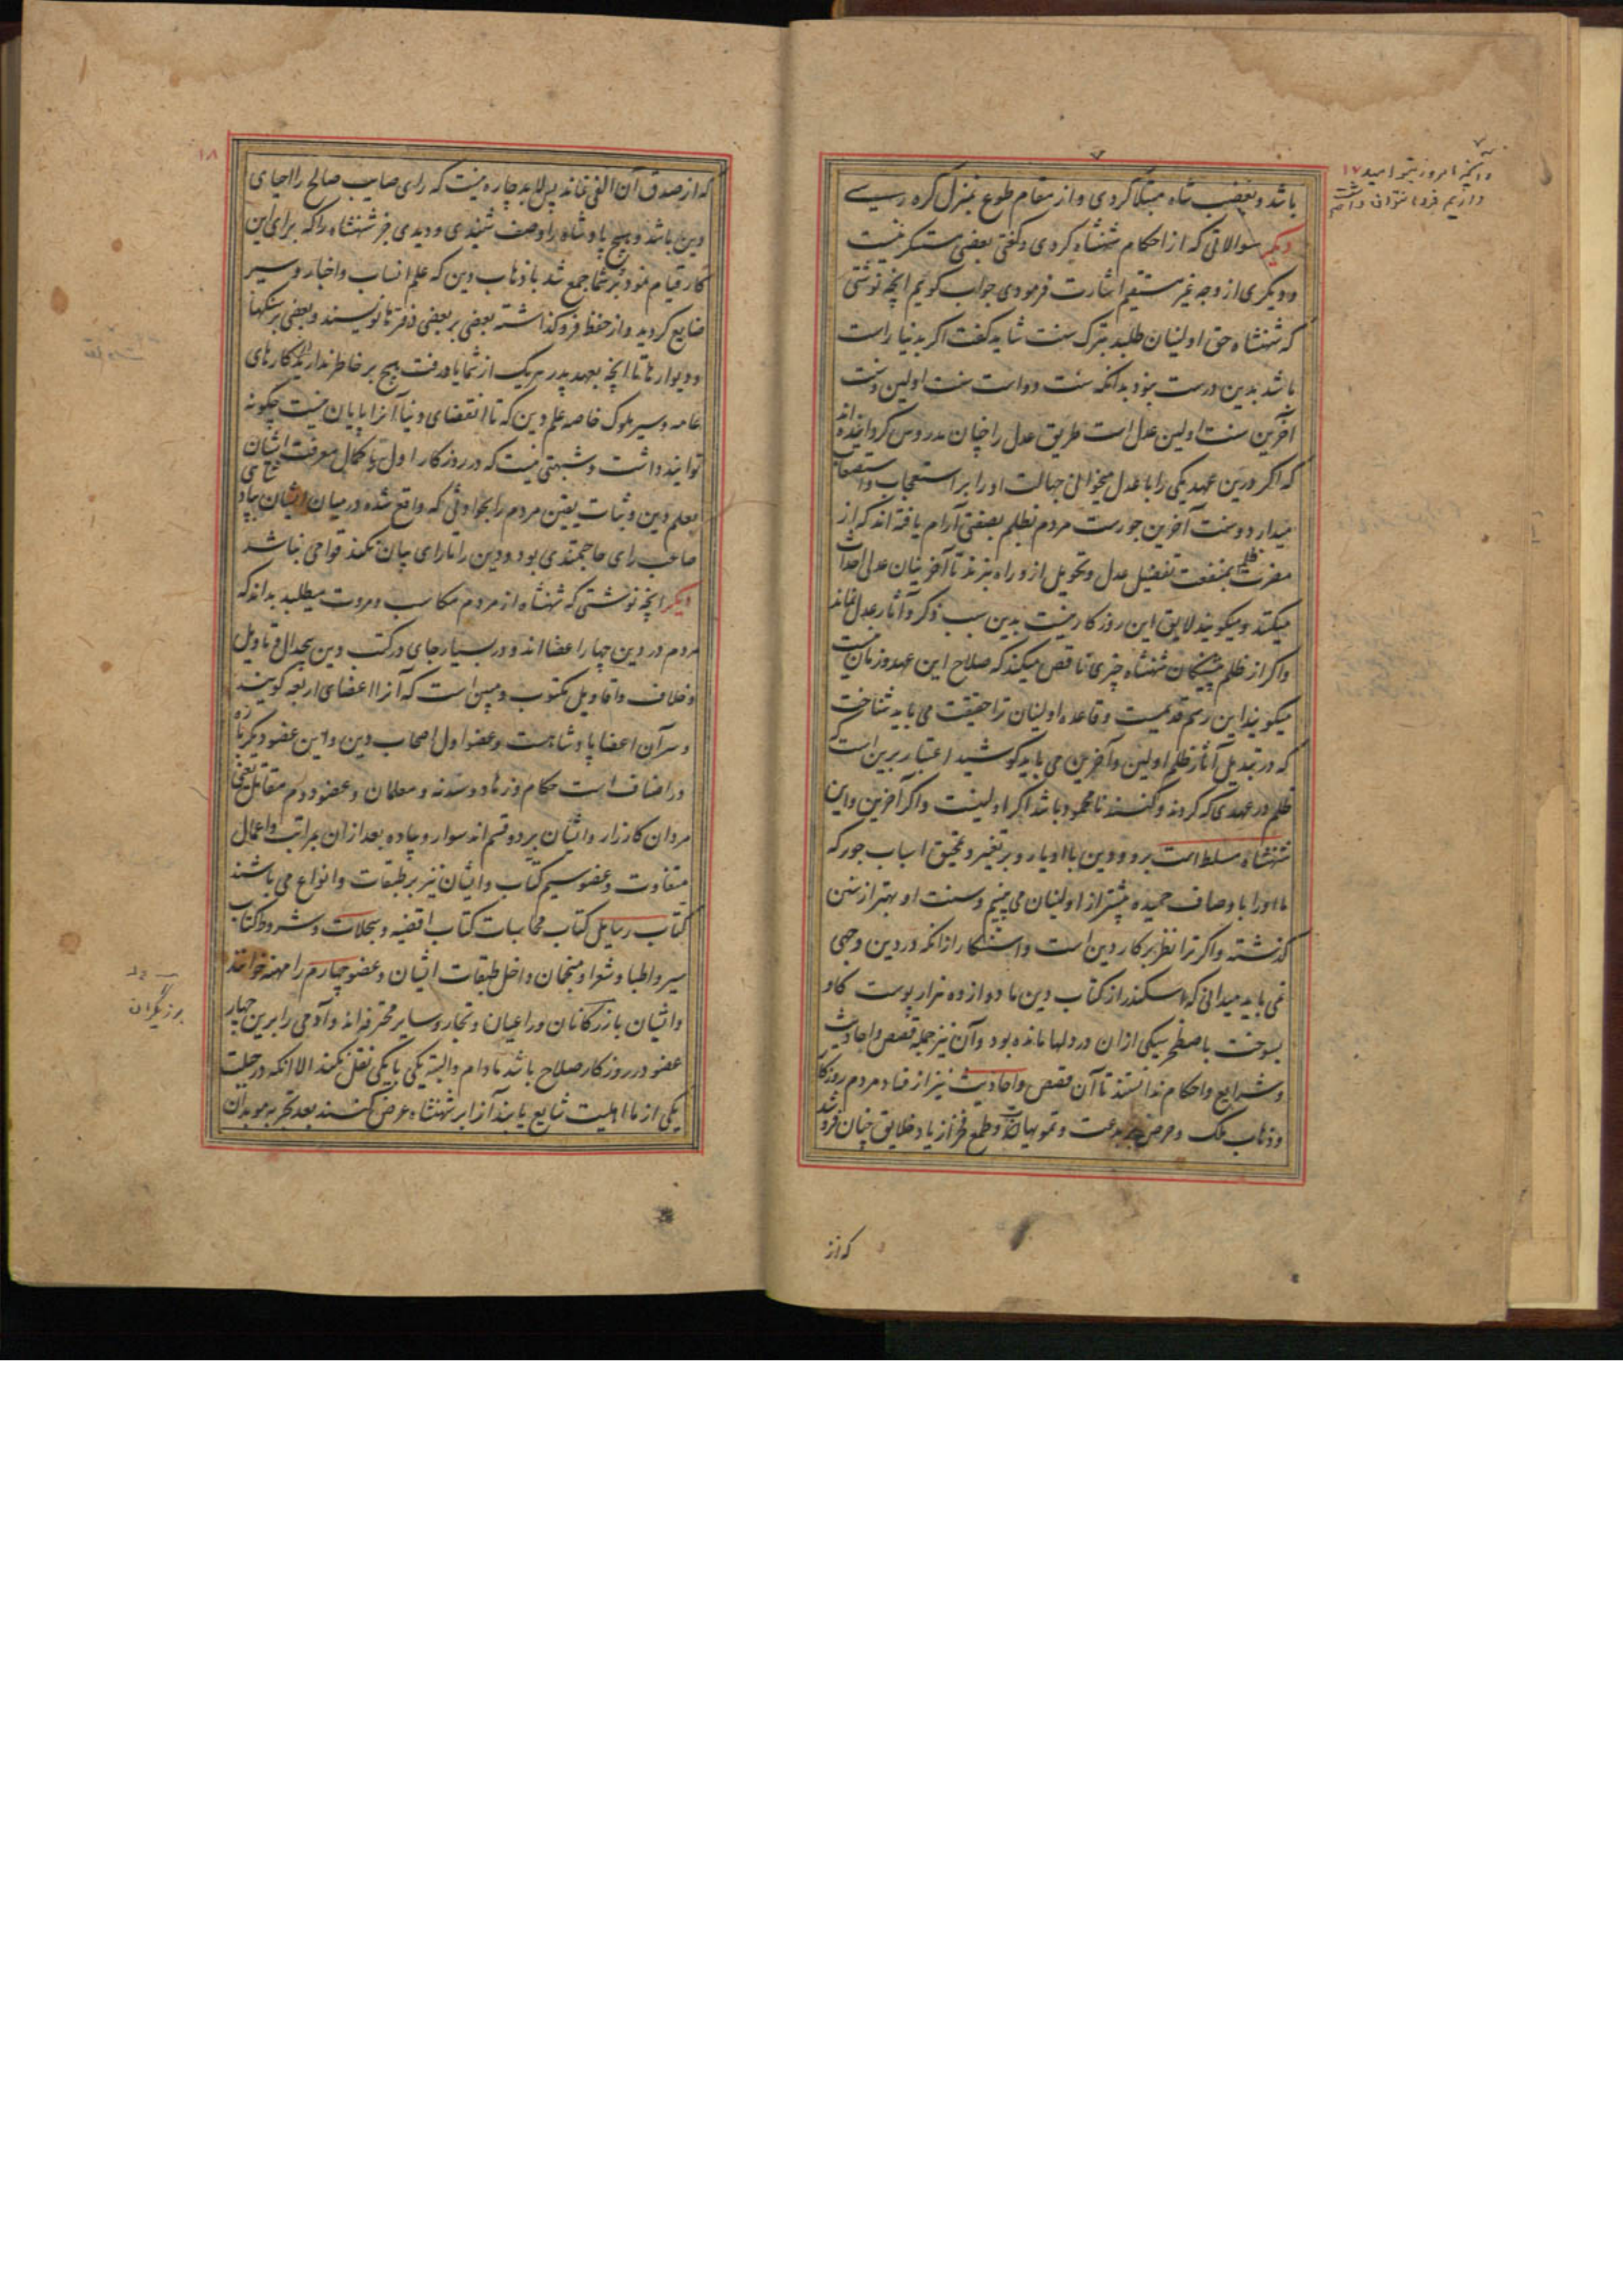 باشد و بغضب شاه مبتلا کردی و از مقام طوع بمنزل کره رسی
دیگر سوالاتی که از احکام شهنشاه کردی و گفتی بعضی مستنکر نیست
و دیگری از وجه غیر مستقیم اشارت فرمودی جواب گویم آنچه نوشتی
که شهنشاه حق اولینان طلبد بترک سنت شاید گفت اگر بدنیا راست
باشد بدین درست نبود بدانکه سنت دو است سنت اولین و سنت
آخرین سنت اولین عدل است طریق عدل را چنان مدروس گردانیده اند
که اگر درین عهد یکی را با عدل میخوانی جهالت او را بر استعجاب و استصعاب
میدارد و سنت آخرین جورست مردم بظلم بصفتی آرام یافته اند که از
مضرت ظلم بمنفعت تفضیل عدل و تحویل ازو راه نبرند تا آخرینان عدلی احداث
میکنند میگویند لایق این روزگار نیست بدین سبب ذکر و آثار عدل نماند
و اگر از ظلم پیشینگان شهنشاه چیزی ناقص میکند که صلاح این عهد و زمان نیست
میگویند این رسم قدیمست و قاعده اولینان ترا حقیقت می باید شناخت
که در تبدیل آثار ظلم اولین و آخرین می باید کوشید اعتبار برین است که
ظلم در عهدی که کردند و کنند نامحمود باشد اگر اولینست و اگر آخرین و این
شهنشاه مسلط است برو و دین با او یار و بر تغییر و تمحیق اسباب جور که
ما او را باوصاف حمیده بیشتر از اولینان می بینیم و سنت او بهتر از سنن
گذشته و اگر ترا نظر بر کار دین است و استنکار از آنکه در دین وجهی
نمی یابد میدانی که اسکندر از کتاب دین ما دوازده هزار پوست گاو
بسوخت باصطخر سیکی ازان در دلها مانده بود و آن نیز جمله قصص و احادیث
و شرایع و احکام ندانستند تا آن قصص و احادیث نیز از فساد مردم روزگار
و ذهاب ملک و حرص بر بدعت و تمویهات و طمع فخر از یاد خلایق چنان فرو شد
که از
۱۷
و آنچه امروز نیز امید
داریم فردا نتوان داشت
۱۸
که از صدق آن الفی نماند پس لابد چاره نیست که رای صایب صالح را احیای
دین باشد و هیچ پادشاه را وصف شنیدی و دیدی جز شهنشاه را که برای این
کار قیام نمود بر شما جمع شد با ذهاب دین که علم انساب و اخبار و سیر
ضایع کردید و از حفظ فرو گذاشته بعضی بر بعضی دفترها نویسند و بعضی بر سنگها
و دیوارها تا آنچه بعهد پدر هریک از شما یاد رفت هیچ بر خاطر ندارید از کارهای
عامه و سیر ملوک خاصه علم دین که تا انقضای دنیا آنرا پایان نیست چگونه
توانید داشت و شبهتی نیست که در روزگار اول با کمال معرفت انسان
بعلم دین و ثبات یقین مردم را بحوادثی که واقع شده در میان ایشان بپادشاهی
صاحب رای حاجتمندی بود و دین را تا رای بیان نکند قوامی نباشد
دیگر آنچه نوشتی که شهنشاه از مردم مکاسب و مروت میطلبد بداند که
مردم در دین چهار اعضا اند و در بسیار جای در کتب دین بی جدال و تاویل
و خلاف و اقاویل مکتوب و مبین است که آنرا اعضای اربعه گویند
و سر آن اعضا پادشاهست و عضو اول اصحاب دین و این عضو دیگر باره
در اضناف است حکام و زهاد و سدنه و معلمان و عضو دوم مقاتل یعنی
مردان کارزار و ایشان بر دو قسم اند سوار و پیاده بعد ازان بمراتب و اعمال
متفاوت و عضو سیم کتاب و ایشان نیز بر طبقات و انواع می باشند
کتاب رسایل کتاب محاسبات کتاب اقضیه و سجلات و شروط کتاب
سیر و اطبا و شعرا و منجمان داخل طبقات ایشان و عضو چهارم را مهنه خوانند
و ایشان بازرگانان و راعیان و تجار و سایر محترفه اند و آدمی را برین چهار
عضو در روزگار صلاح باشد مادام و البته یکی با یکی نقل نکند الا آنکه در جبلت
یکی از ما اهلیت شایع یابند آنرا بر شهنشاه عرض کنند بعد تجربه موبدان
برزیگران